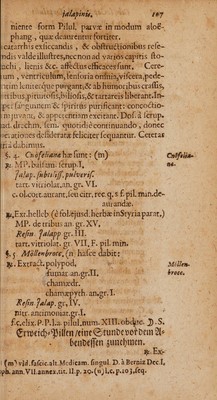 jalapinis. 107
niente form Pilul, parve in modum aloë-
phang, quæ deaurentur fortiter.
catarrhis exiccandis, & obstructionibus rese-
andis valde illustres, necnon ad varios capitis, sto-
machi, lienis &c. affectus efficaces sunt. Cere-
rum, ventriculum, sensoria omnia, viscera, pede-
tentim leniterque purgant; & ab humoribus crassis,
pituitosis, biliosis, & tartareis liberant. In-
per sanguinem & spiritus purificant: concoctio-
juvant, & appetentiam excitant. Dos. à scrup.
ad drachm. sem. quotidie continuando, donec
effectus desiderata feliciter sequatur. Cetera
dabimus.
§. 4. Cnöfeliana hæ sunt: (m)
Cnöfelia-
næ.
℞. MP. balsam. scrup. I,
Jalap. subtiliss. pulveris.
tart. vitriolat. an. gr. VI.
c. ol. cort. aurant. leu citr. rec. q. s. f. pil. man. de-
aurandæ.
℞. Extr. helleb (è sol. ejusd. herbæ in Styria parat.)
MP. de tribus an. gr. XV,
Resin. Jalapp gr. III.
tart. vitriolat. gr. VII, F. pil. min.
§. 5 Möllenbroc. (n) hasce dabit:
Möllen-
brocc.
℞. Extract. polypod.
fumar. an. gr. II
chamædr.
chamæpyth. an. gr. I.
Resin. Jalap. gr. IV.
nitr. antimoniat. gr. I.
f. c. elix. P. P. l. a. pilul. num. XIII. obduc. D. S.
Erweich-Pillen/eine Stunde vor dem A-
bendessen zunehmen.
℞. Ex-
(m) vid. fascic. alt. Medicam. singul. D. à Bernitz Dec. I,
(n) l. c. p. 103, seq.